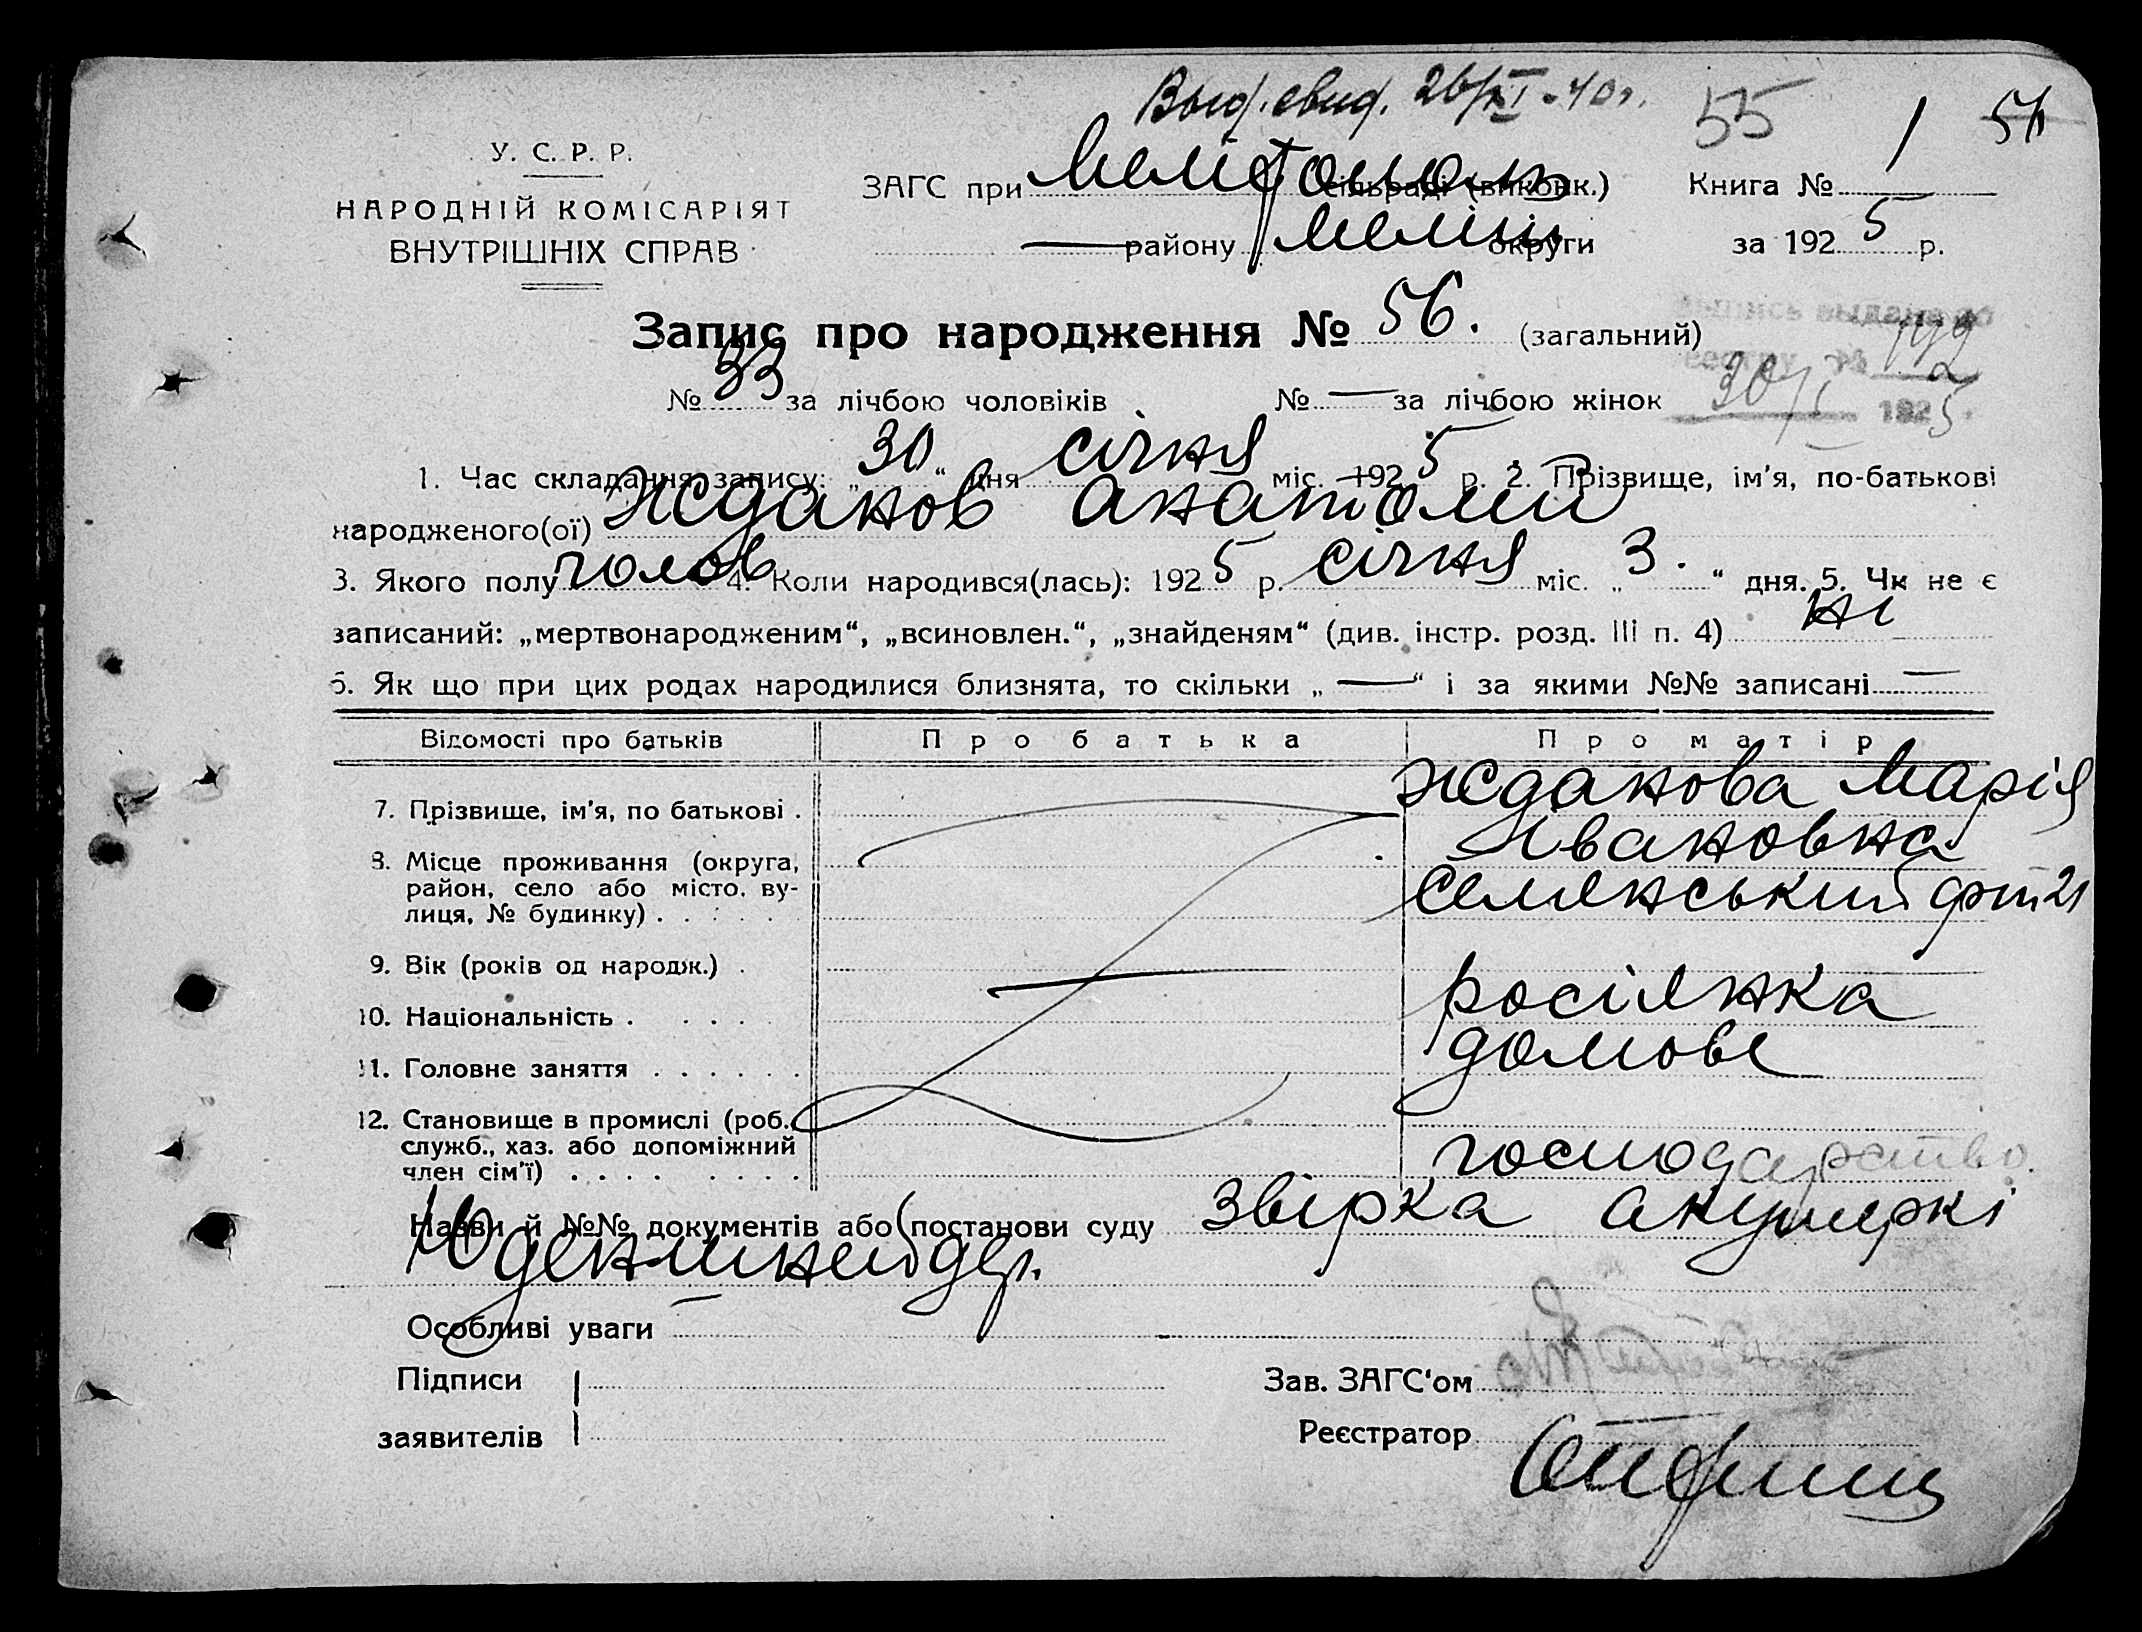 Выд. свид. 26/XI-40 г.
55 56
У. С. Р. Р.
НАРОДНІЙ КОМІСАРІЯТ
ВНУТРІШНІХ СПРАВ
ЗАГС при Мелітополь сільраді (виконк.) Книга № 1
— району Меліт округи за 192 5 р.
Запис про народження № 56. (загальний)
выдана по
№ 33 за лічбою чоловіків № — за лічбою жінок
30/I 1925.
1. Час складання запису: „ 30 “ дня січня міс. 192 5 р. 2. Прізвище, ім'я, по-батькові
народженого(ої) Жданов Анатолій
3. Якого полу чолов 4. Коли народився(лась): 192 5 р. січня міс. „ 3. “ дня. 5. Чи не є
записаний: „мертвонародженим“, „всиновлен.“, „знайденям“ (див. інстр. розд. III п. 4) ні
6. Як що при цих родах народилися близнята, то скільки „ — “ і за якими №№ записані —
Відомості про батьків Про батька Про матір
7. Прізвище, ім'я, по батькові . Жданова Марія
Івановна
8. Місце проживання (округа,
район, село або місто, ву-
лиця, № будинку) . . . . . 21
9. Вік (років од народж.) .
10. Національність . . . . росіянка
11. Головне заняття . . . . . . домове
12. Становище в промислі (роб.,
служб., хаз. або допоміжний
член сім'ї) . . . . . . . . господарство
Назви й №№ документів або постанови суду Звірка акушеркі
Особливі уваги —
Підписи
заявителів
Зав. ЗАГС'ом
Реєстратор